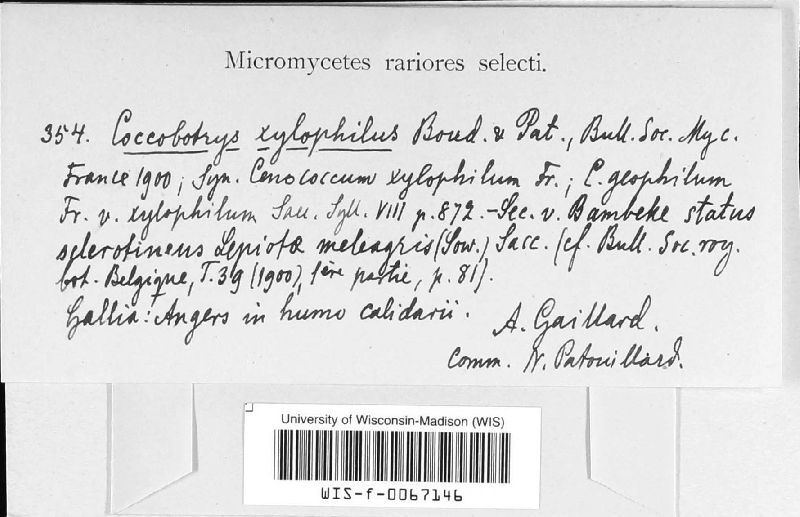 Micromycetes rariores selecti.
354. Coccobotrys xylophilus Boud. & Pat., Bull. Soc. Myc.
France 1900; Syn. Cenococcum xylophilum Fr.; C. geophilum
Fr. v. xylophilum Sacc. Syll. VIII p. 872. - Sec. v. Bambeke status
sclerotineus Lepiotæ meleagris (Sow.) Sacc. (cf. Bull. Soc. roy.
bot. Belgique, T. 39 (1900), 1ère partie, p. 81).
Gallia: Angers in humo calidarii.
A. Gaillard.
Comm. N. Patouillard.
University of Wisconsin-Madison (WIS)
WIS-f-0067146